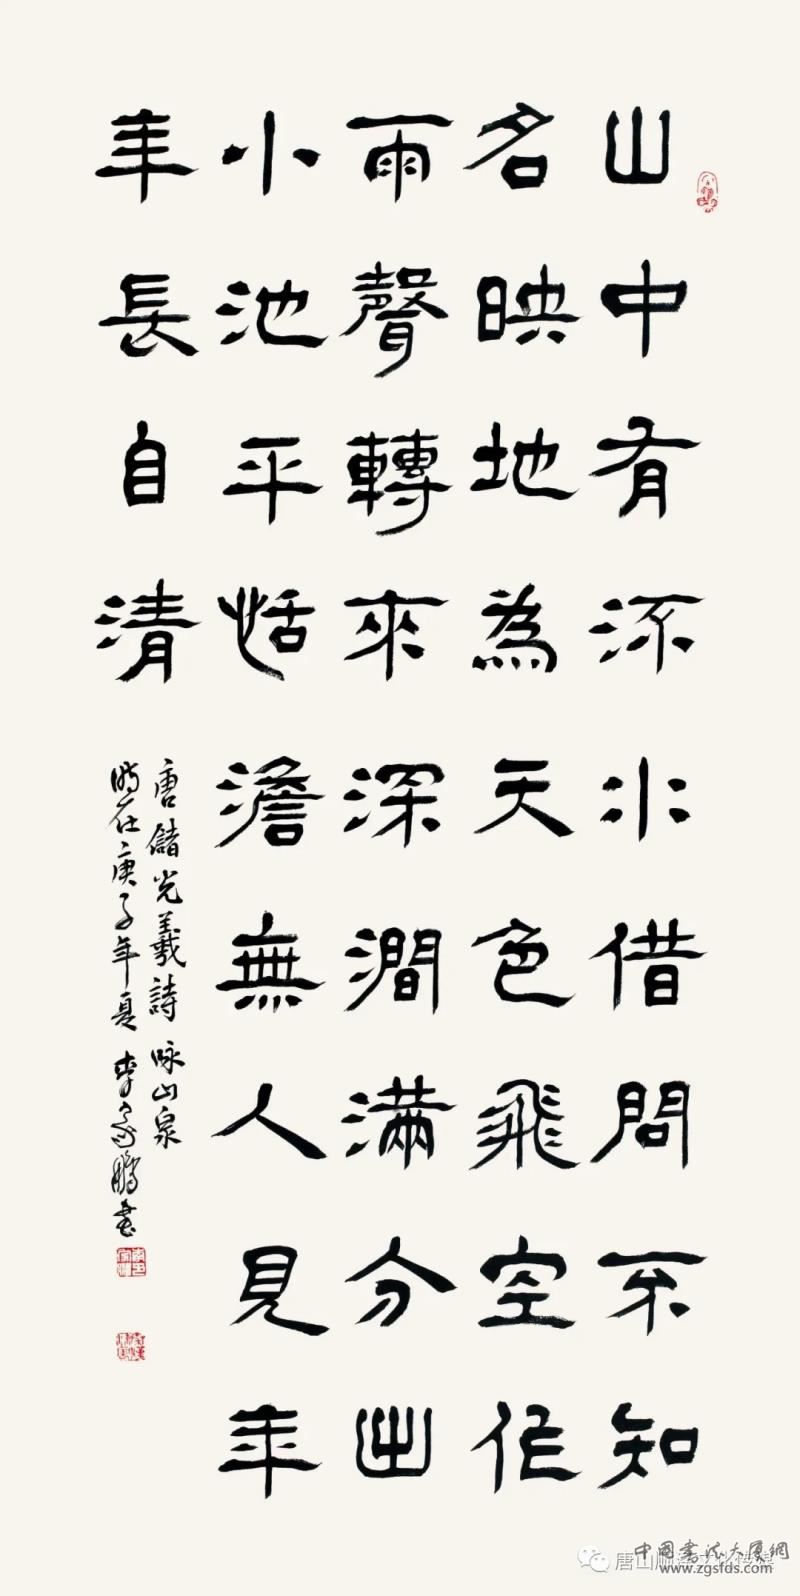 山中有流水借問不知
名映地為天色飛空作
雨聲轉來深澗滿分出
小池平恬澹無人見年
年長自清
唐儲光羲詩咏山泉
時在庚子年夏李家鵬書
唐山文化传媒
中國書法大厦網
www.zgsfds.com